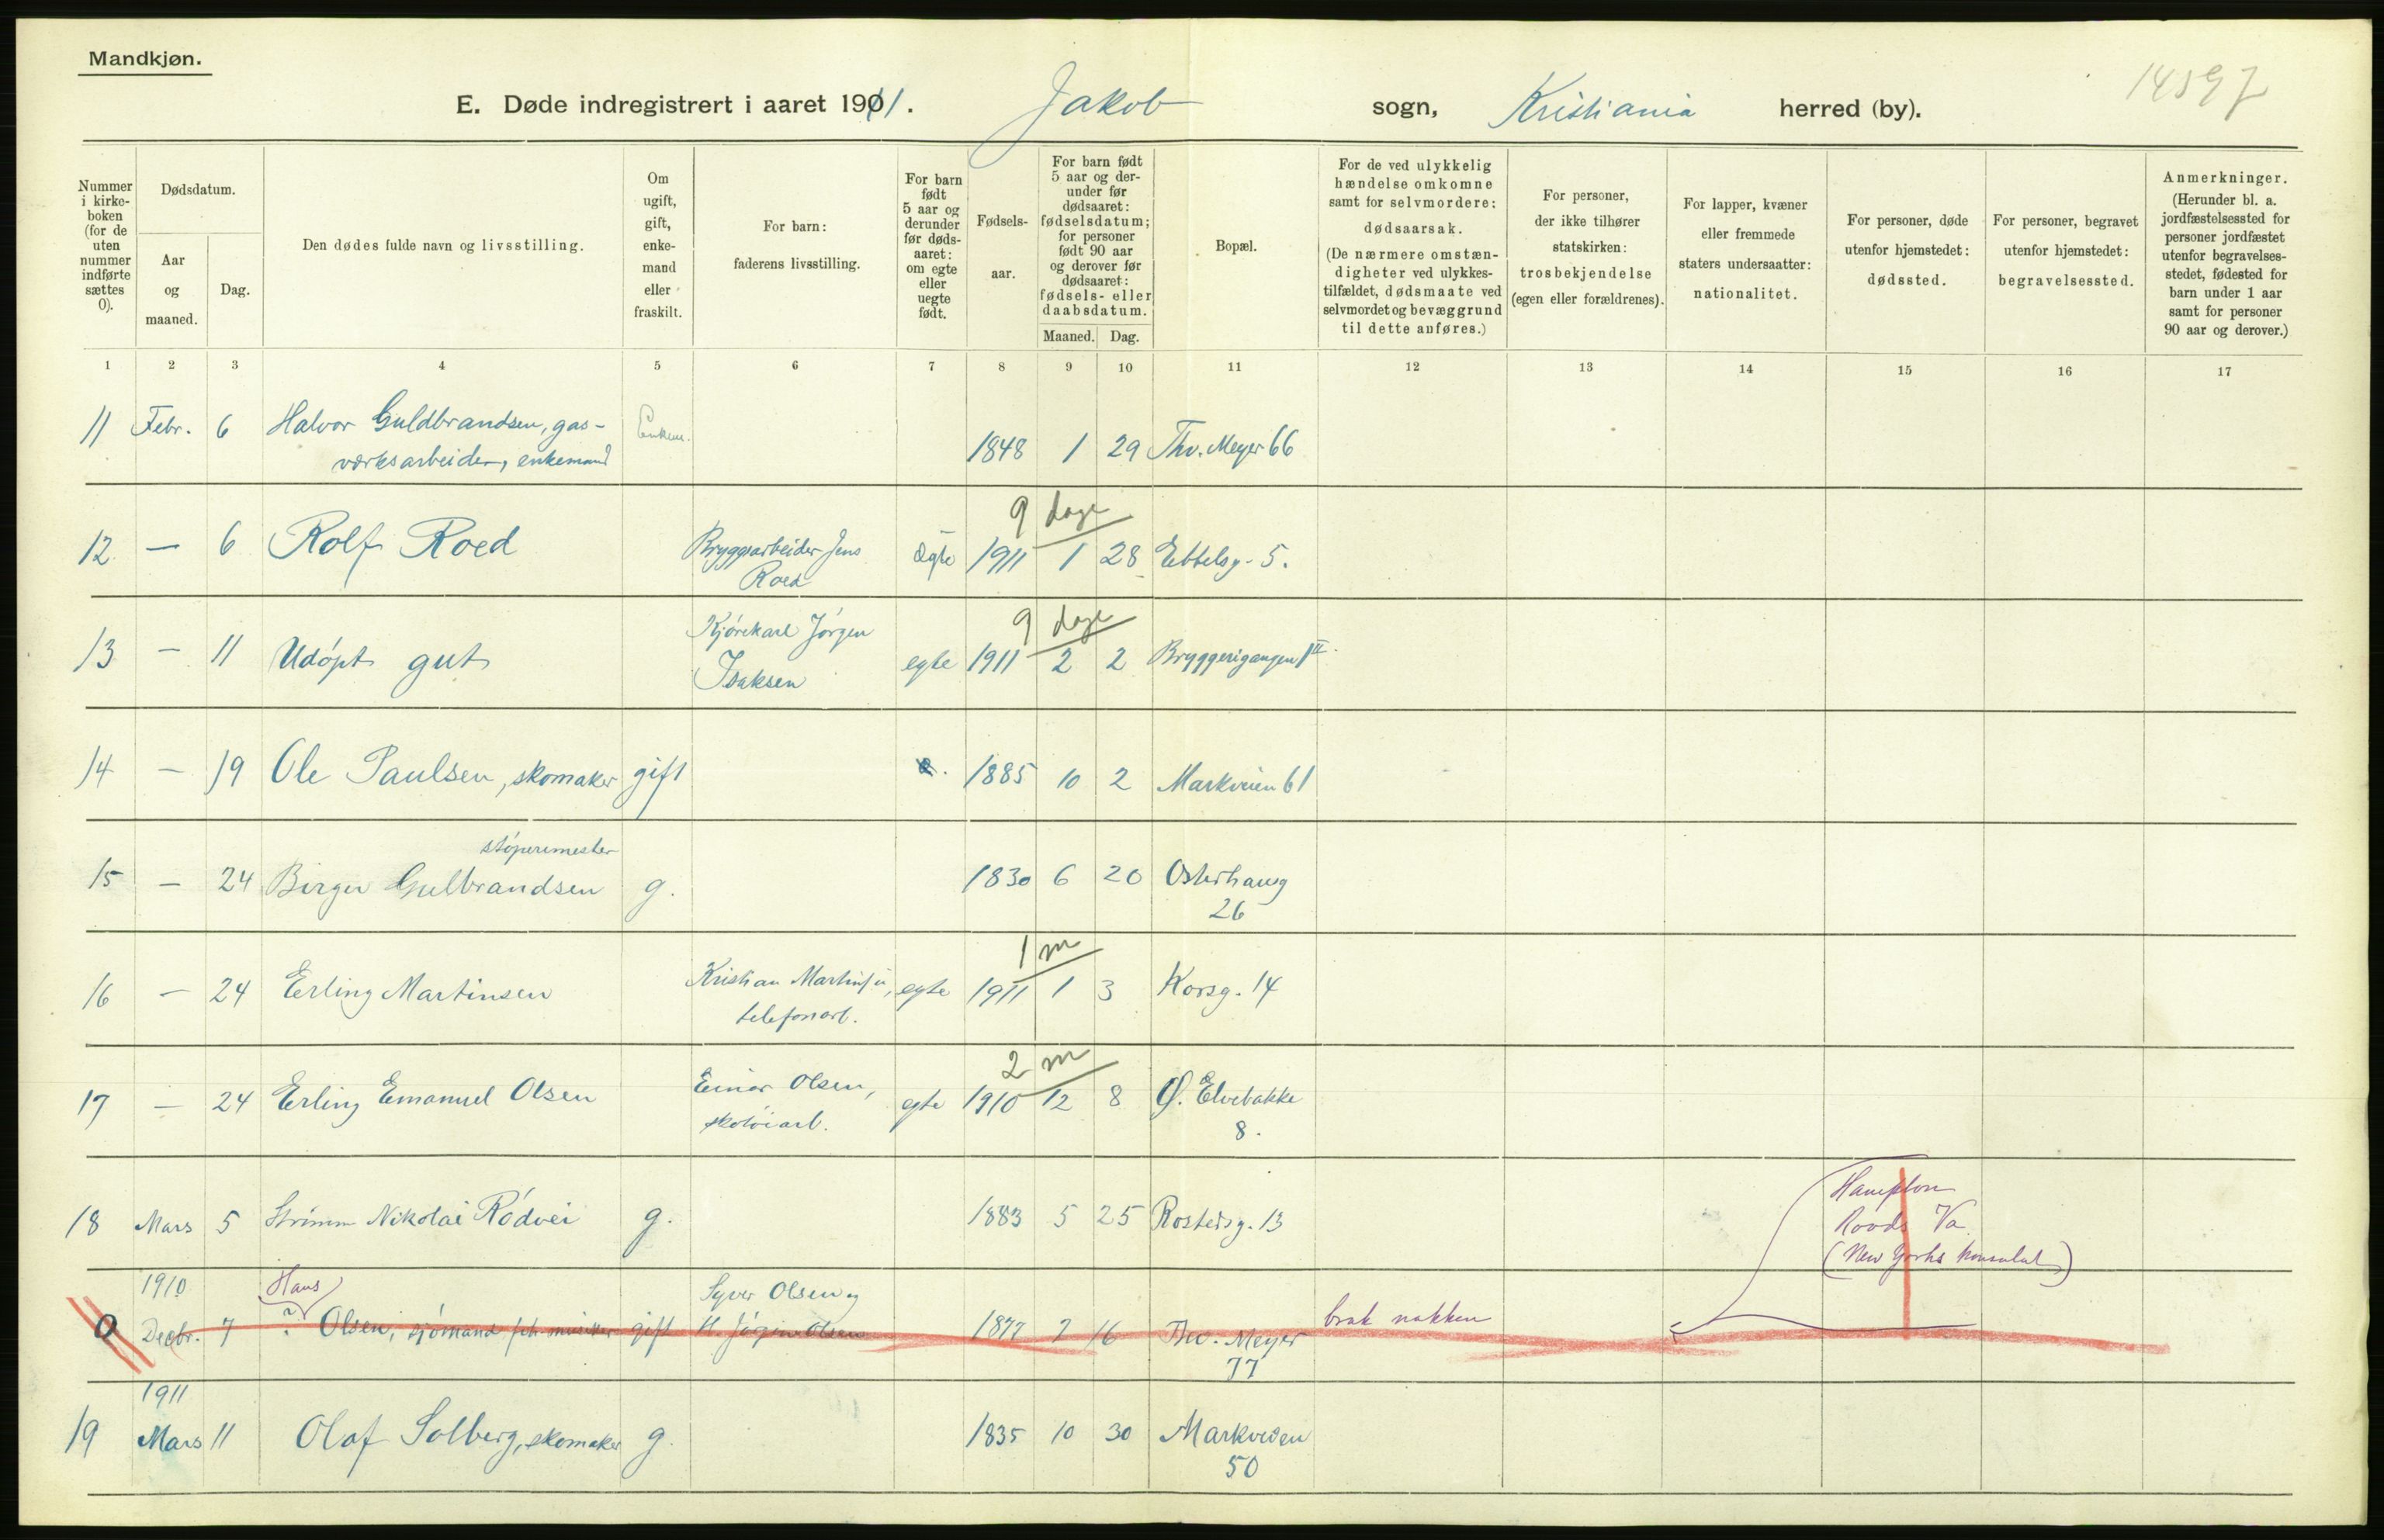 Mandkjøn.
14597
E. Døde indregistrert i aaret 1911. Jakob sogn, Kristiania herred (by).
Nummer i kirke-boken (for de uten nummer indførte sættes 0).
Dødsdatum.
Aar og maaned.
Dag.
Den dødes fulde navn og livsstilling.
Om ugift, gift, enke-mand eller fraskilt.
For barn: faderens livsstilling.
For barn født 5 aar og derunder før døds-aaret: om egte eller uegte født.
Fødsels-aar.
For barn født 5 aar og der-under før dødsaaret: fødselsdatum; for personer født 90 aar og derover før dødsaaret: fødsels- eller daabsdatum.
Maaned. Dag.
Bopæl.
For de ved ulykkelig hændelse omkomne samt for selvmordere: dødsaarsak. (De nærmere omstæn-digheter ved ulykkes-tilfældet, dødsmaate ved selvmordet og bevæggrund til dette anføres.)
For personer, der ikke tilhører statskirken: trosbekjendelse (egen eller forældrenes).
For lapper, kvæner eller fremmede staters undersaatter: nationalitet.
For personer, døde utenfor hjemstedet: dødssted.
For personer, begravet utenfor hjemstedet: begravelsessted.
Anmerkninger. (Herunder bl. a. jordfæstelsessted for personer jordfæstet utenfor begravelses-stedet, fødested for barn under 1 aar samt for personer 90 aar og derover.)
1 2 3 4 5 6 7 8 9 10 11 12 13 14 15 16 17
11 Febr. 6 Halvor Guldbrandsen, gas- Enkem.
værksarbeider, enkemand 1848 1 29 Thv. Meyer 66
9 dage
12 — 6 Rolf Roed Bryggearbeider Jens Roed ægte 1911 1 28 Ebbelsg. 5.
9 dage
13 — 11 Udøpt gut Kjørekarl Jørgen Isaksen egte 1911 2 2 Bryggerigangen 1 II.
14 — 19 Ole Paulsen, skomaker gift 1885 10 2 Markveien 61
støperimester
15 — 24 Birger Gulbrandsen g. 1830 6 20 Osterhausg 26
1 m
16 — 24 Erling Martinsen Kristian Martinsen, telefonarb. egte 1911 1 3 Korsg. 14
2 m
17 — 24 Erling Emanuel Olsen Einar Olsen, skotøiarb. egte 1910 12 8 Ø. Elvebakke 8.
18 Mars 5 Nikolai Rødvei g. 1883 5 25 Rostedsg. 13
Hampton
Roods Va
(New Yorks konsulat)
1910 Hans Syver Olsen og
0 Decbr. 7 ? Olsen, sjømand gift H. Jørgine Olsen 1877 7 16 Thv. Meyer 77 brak nakken
1911
19 Mars 11 Olaf Solberg, skomaker g. 1835 10 30 Markveien 50